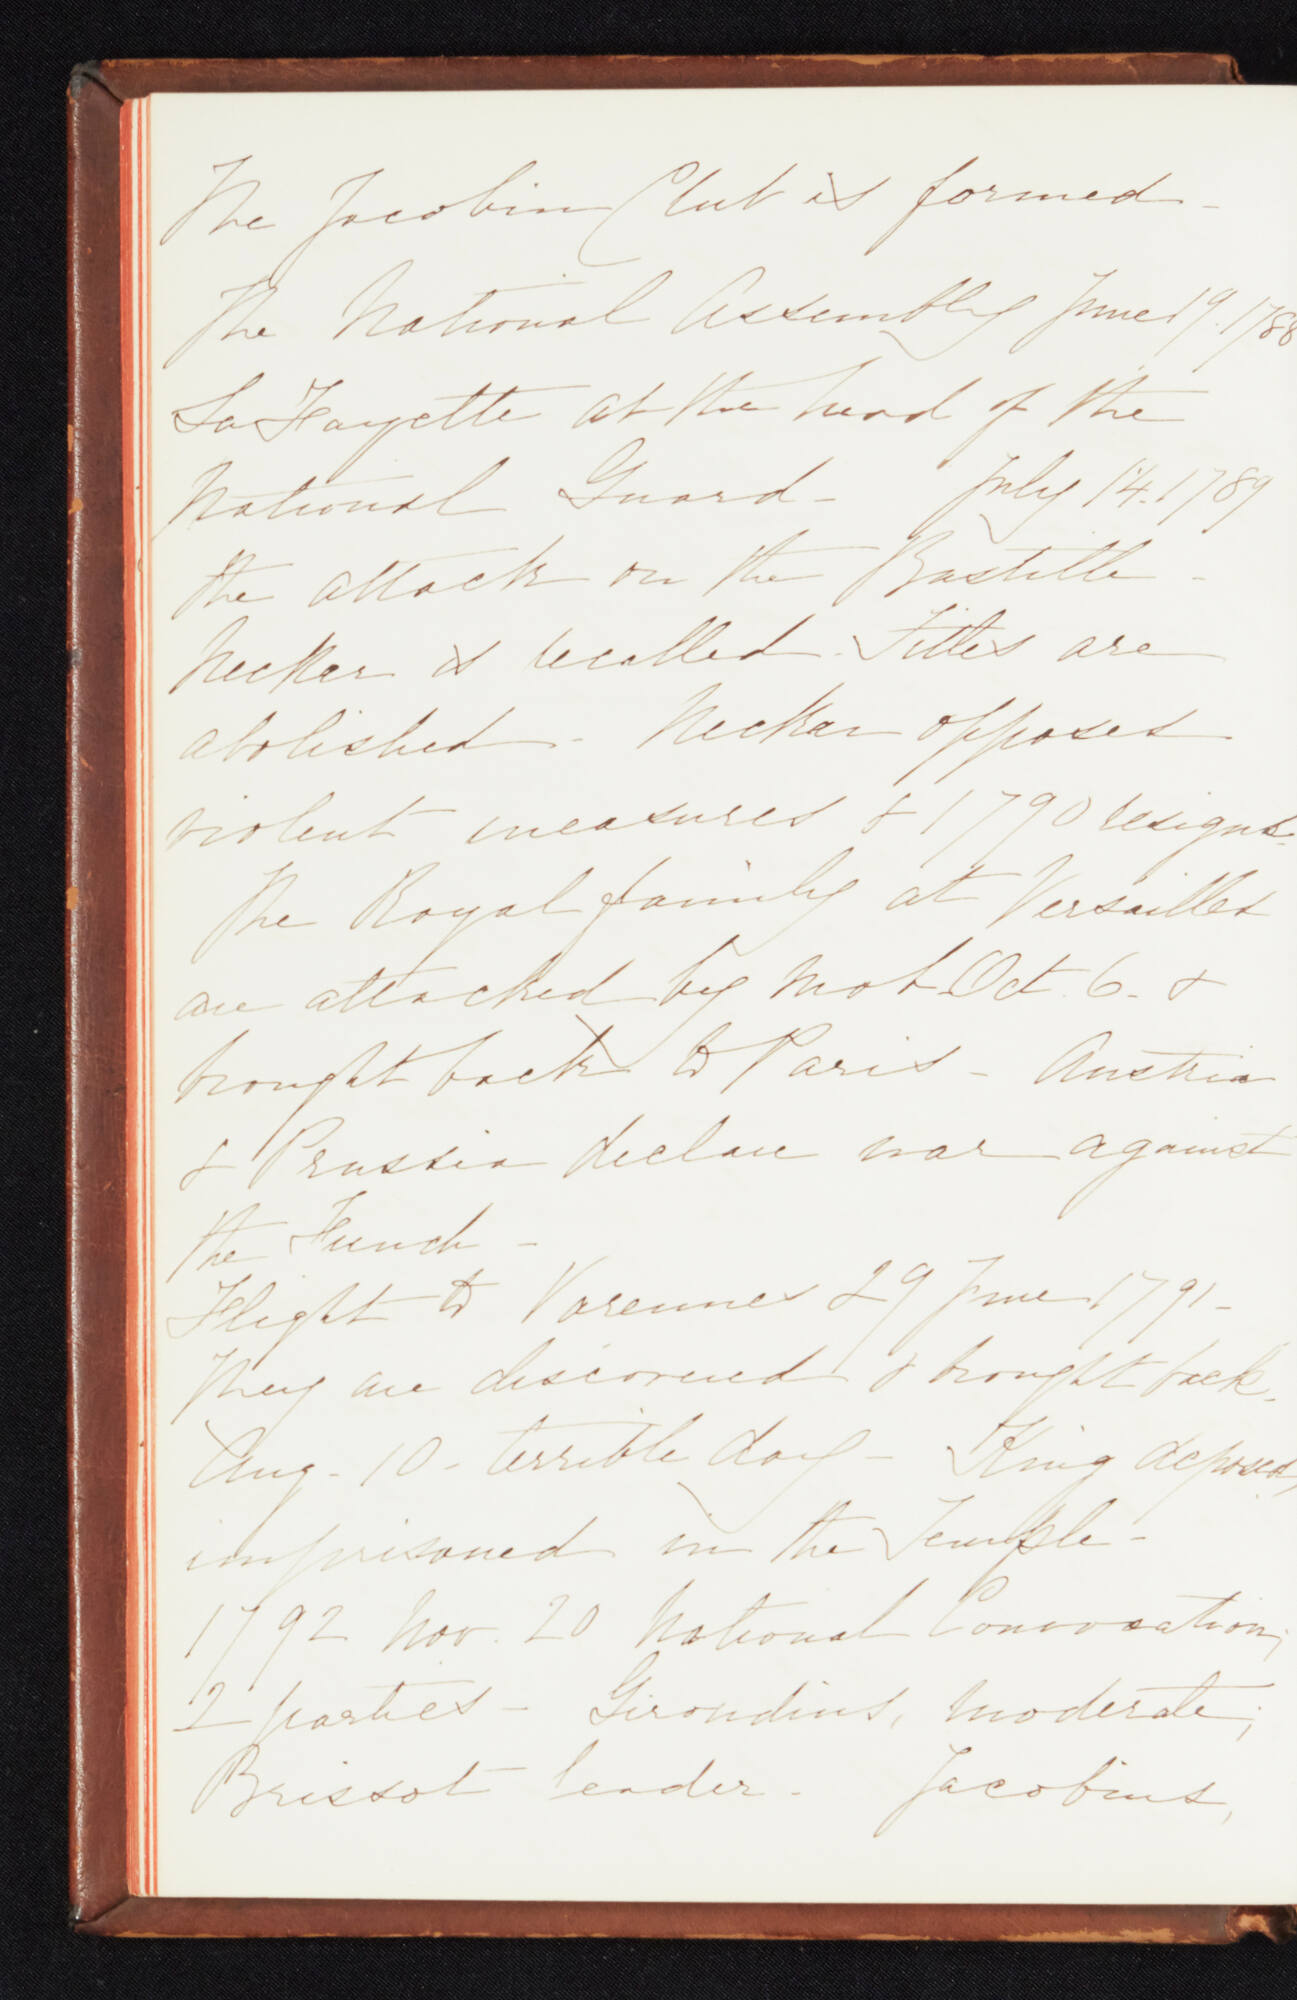 The Jacobin Club is formed -
The National Assembly June 19. 1788
La Fayette at the head of the
National Guard - July 14. 1789
the attack on the Bastille -
Necker is recalled. Titles are
abolished - Necker opposes
violent measures & 1790 resigns.
The Royal family at Versailles
are attacked by mob Oct. 6. &
brought back to Paris - Austria
& Prussia declare war against
the French -
Flight to Varennes 29 June 1791 -
They are discovered & brought back.
Aug. 10 - terrible day - King deposed,
imprisoned in the Temple -
1792 Nov. 20 National Convocation;
2 parties - Girondins, moderate;
Brissot leader - Jacobins,